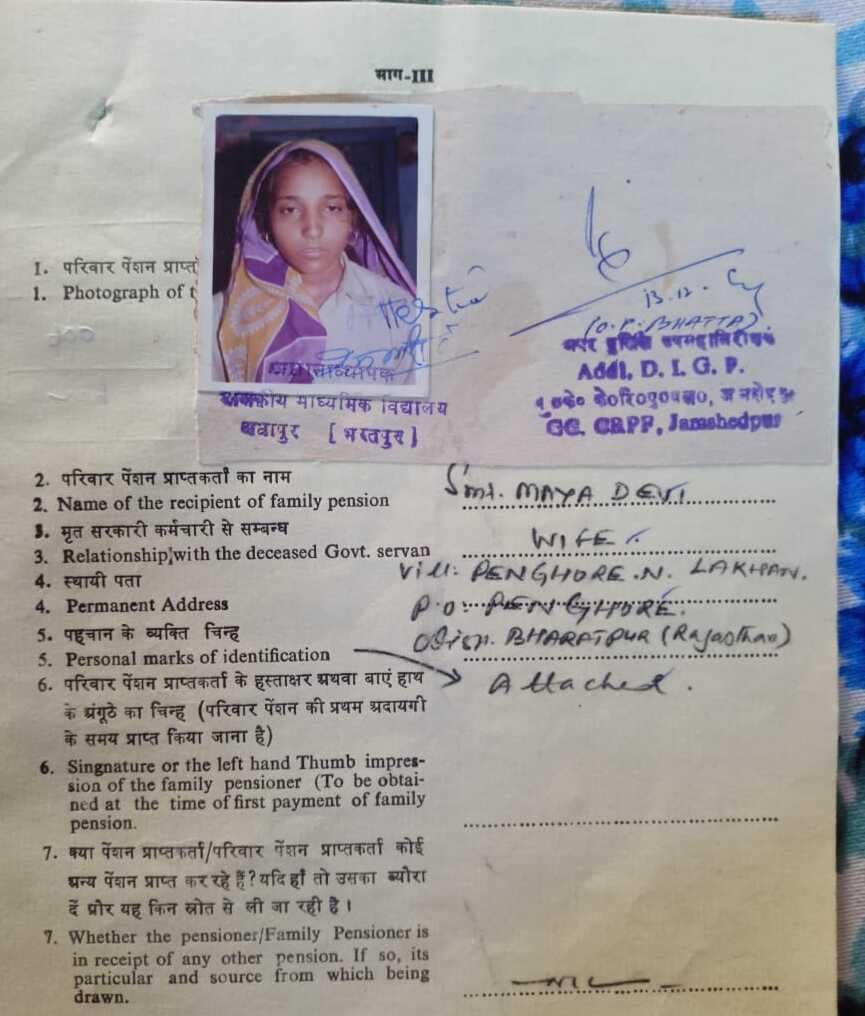 भाग-III
1. परिवार पेंशन प्राप्त
1. Photograph of t
13.12.
(O.P. BHATTA)
अपर पुलिस उपमहानिरीक्षक
Addl. D. I. G. P.
GC. CRPF, Jamshedpur
प्रधानाध्यापक
राजकीय माध्यमिक विद्यालय
[ भरतपुर ]
2. परिवार पेंशन प्राप्तकर्ता का नाम
2. Name of the recipient of family pension Smt. MAYA DEVI
3. मृत सरकारी कर्मचारी से सम्बन्ध
3. Relationship with the deceased Govt. servan WIFE
4. स्थायी पता Vill: PENGHORE .N. LAKHAN.
4. Permanent Address P.O: PENGHORE
5. पहचान के व्यक्ति चिन्ह Dist. BHARATPUR (Rajasthan)
5. Personal marks of identification
6. परिवार पेंशन प्राप्तकर्ता के हस्ताक्षर अथवा बाएं हाथ Attached.
के अंगूठे का चिन्ह (परिवार पेंशन की प्रथम अदायगी
के समय प्राप्त किया जाना है)
6. Singnature or the left hand Thumb impres-
sion of the family pensioner (To be obtai-
ned at the time of first payment of family
pension.
7. क्या पेंशन प्राप्तकर्ता/परिवार पेंशन प्राप्तकर्ता कोई
अन्य पेंशन प्राप्त कर रहे हैं? यदि हाँ तो उसका ब्यौरा
दें और यह किन स्रोत से ली जा रही है।
7. Whether the pensioner/Family Pensioner is
in receipt of any other pension. If so, its
particular and source from which being
drawn.